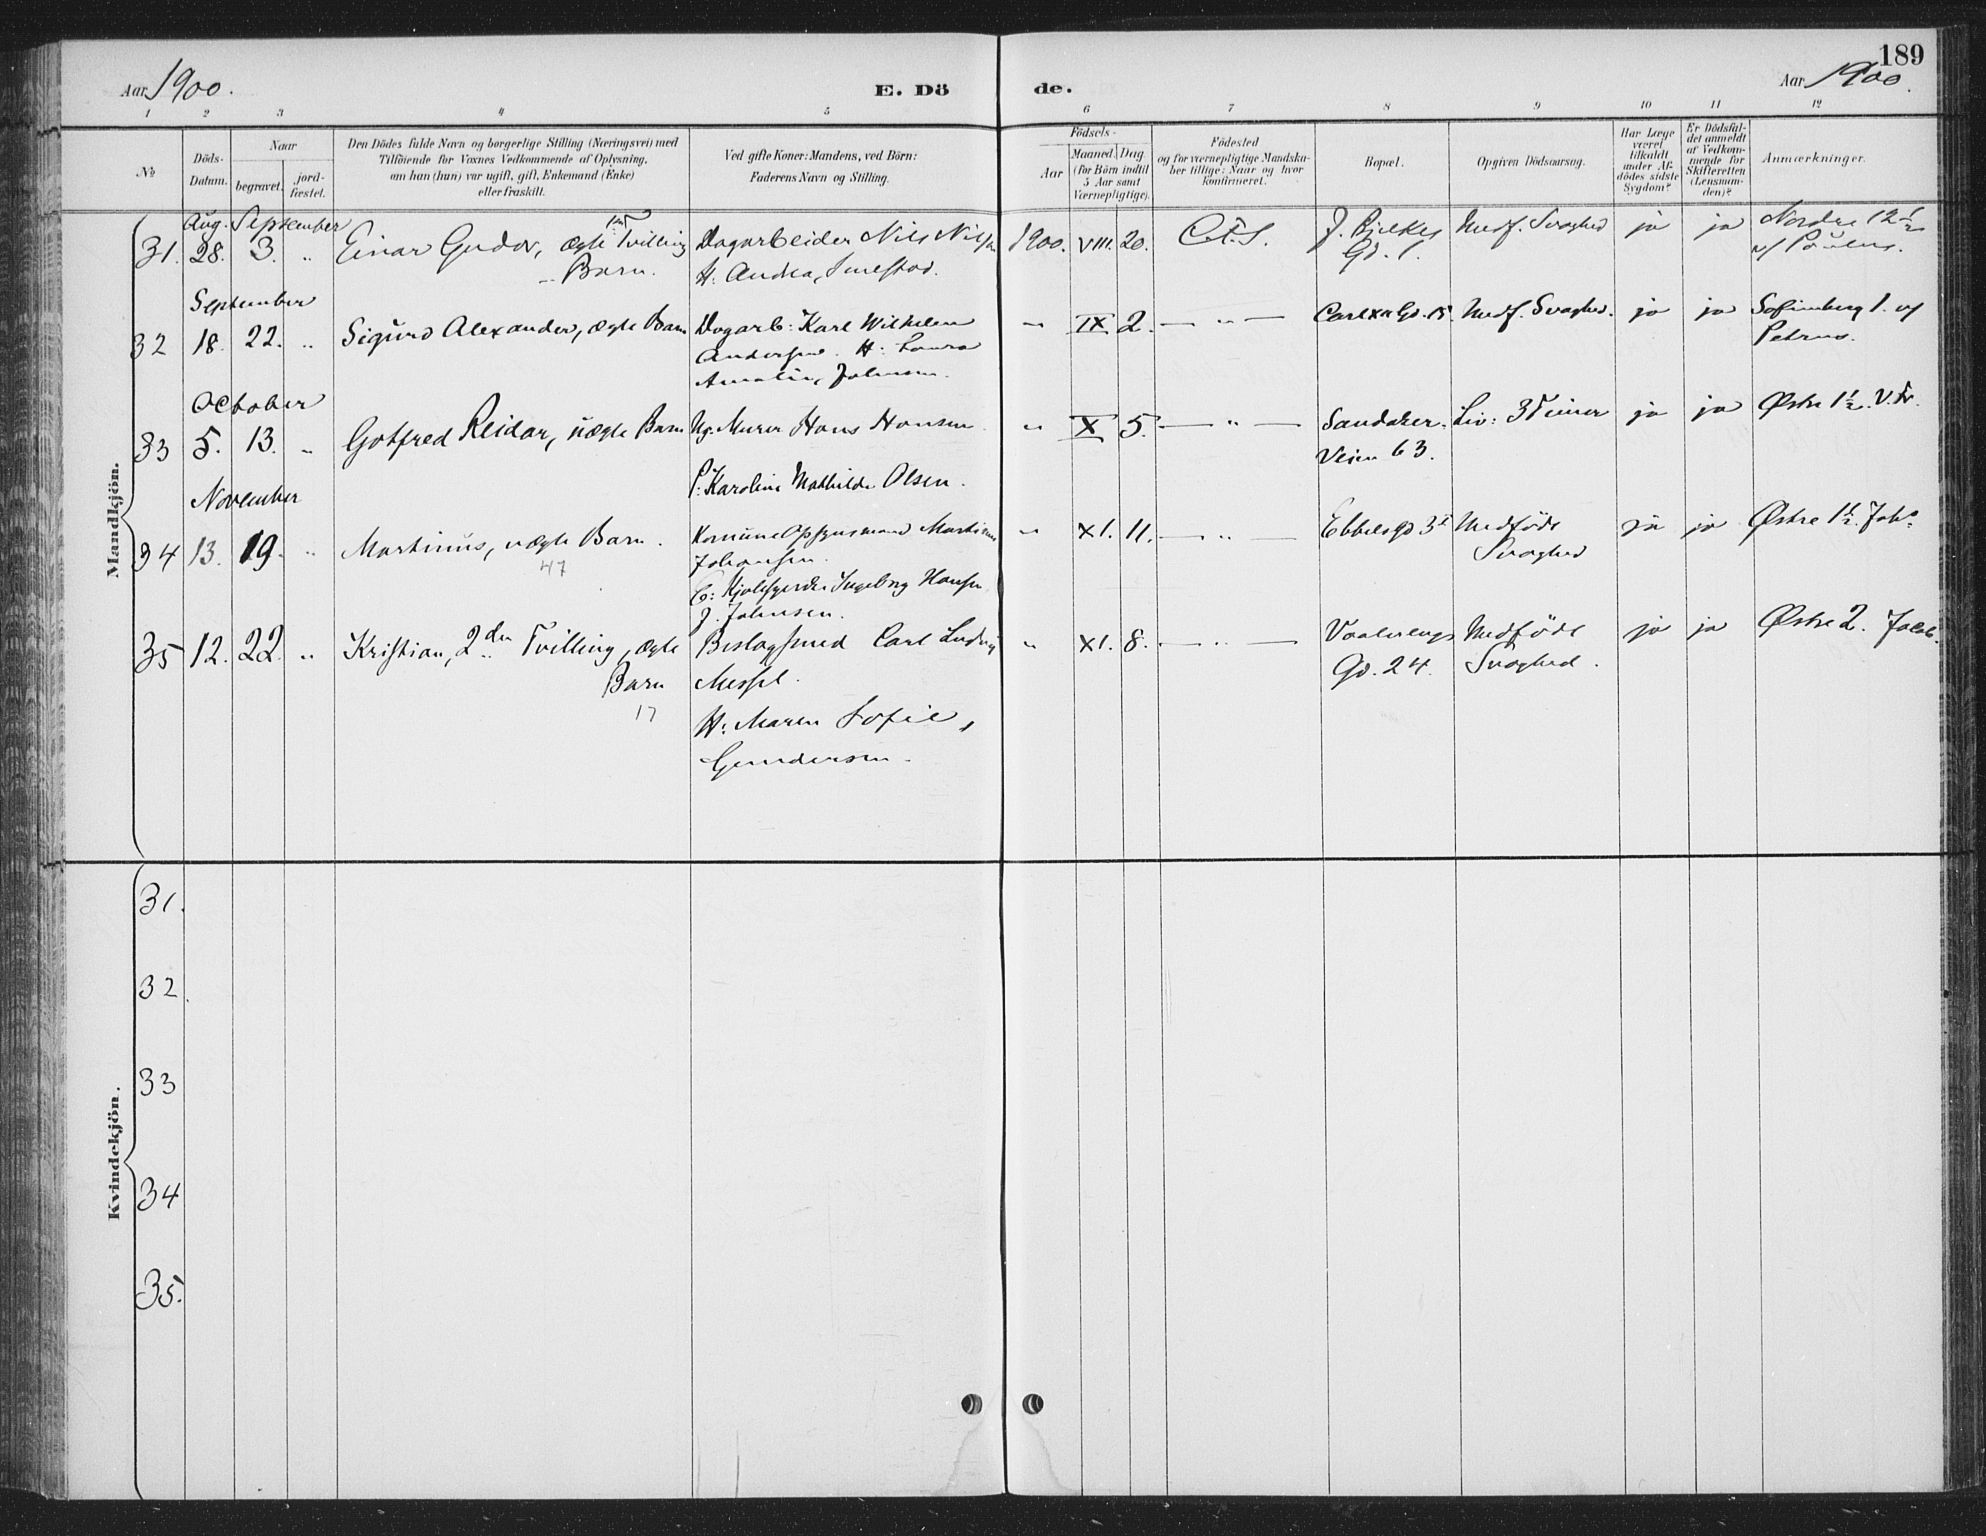 189
Aar 1900.
E. Dö
de.
Aar 1900.
1 2 3 4 5 6 7 8 9 10 11 12
No
Döds-
Datum.
Naar
begravet.
jord-
fæstet.
Den Dödes fulde Navn og borgerlige Stilling (Næringsvei) med
Tilföiende for Voxnes Vedkommende af Oplysning,
om han (hun) var ugift, gift, Enkemand (Enke)
eller fraskilt.
Ved gifte Koner: Mandens, ved Börn:
Faderens Navn og Stilling.
Födsels-
Aar
Maaned.
Dag.
(for Börn indtil
5 Aar samt
Værnepligtige).
Födested
og for værnepligtige Mandska-
ber tillige: Naar og hvor
konfirmeret.
Bopæl.
Opgiven Dödsaarsag.
Har Læge
været
tilkaldt
under Af-
dödes sidste
Sygdom?
Er Dödsfal-
det anmeldt
af Vedkom-
mende for
Skifteretten
(Lensman-
den)?
Anmærkninger.
Mandkjön.
Aug. September
31. 28. 3. " Einar Gudov, ægte 1ste Tvilling Dagarbeider Nils Nilsen 1900. VIII. 20. J. Bjelkes Medf. Svaghed ja ja Nordre 12 1/2
Barn. H. Andrea, Smestad. Gd. 1. v/ Paulus.
September
32 18. 22. " Sigurd Alexander, ægte Barn Dagarb: Karl Wilhelm " IX 2. — " — Carl XII Gd. 15 Medf. Svaghed. ja ja Sofienberg 1. v/
Andersen. H: Laura Petrus.
Amalie, Johnsen.
October
33 5. 13. " Gotfred Reidar, uægte Barn Ug. Murer Hans Hansen " X 5. — " — Sandaker- Liv: 3 Timer ja ja Østre 1 1/2. V. Fr.
Veien 63.
P: Karoline Mathilde Olsen.
November
34 13. 19. " Martinus, uægte Barn. KomuneOpsynsmand Martinus " XI. 11. — " — Ebbelsgd 3 Medfödt ja ja Østre 1 1/2. Joh.
47 Johansen. Svaghed
Kjolesyerske Ingeborg Hansen
J. Johnsen.
35 12. 22. " Kristian, 2den Tvilling, ægte Beslagsmed Carl Ludvig " XI. 8. — " — Vaalerengs Medfödt ja ja Østre 2. Jakob.
Barn Messel. Gd. 24. Svaghed.
17 H: Maren Sofie,
Gundersen.
Kvindekjön.
31.
32
33
34
35.